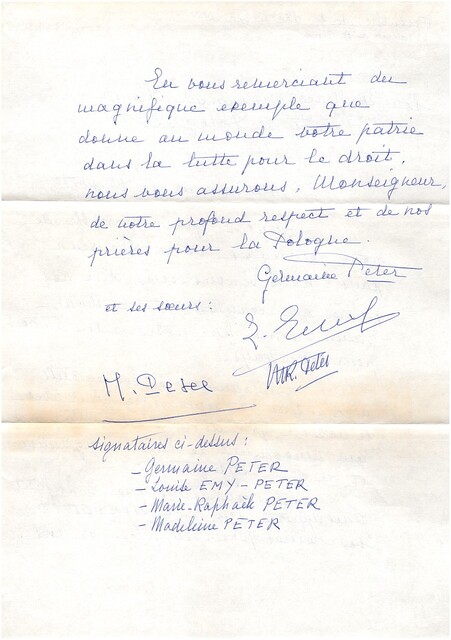 En vous remerciant du
magnifique exemple que
donne au monde votre patrie
dans la lutte pour le droit,
nous vous assurons, Monseigneur,
de notre profond respect et de nos
prières pour la Pologne.
Germaine Peter
et ses sœurs :
L. Emy
MR. Peter
M. Peter
signataires ci-dessus :
- Germaine PETER
- Louise EMY - PETER
- Marie-Raphaële PETER
- Madeleine PETER